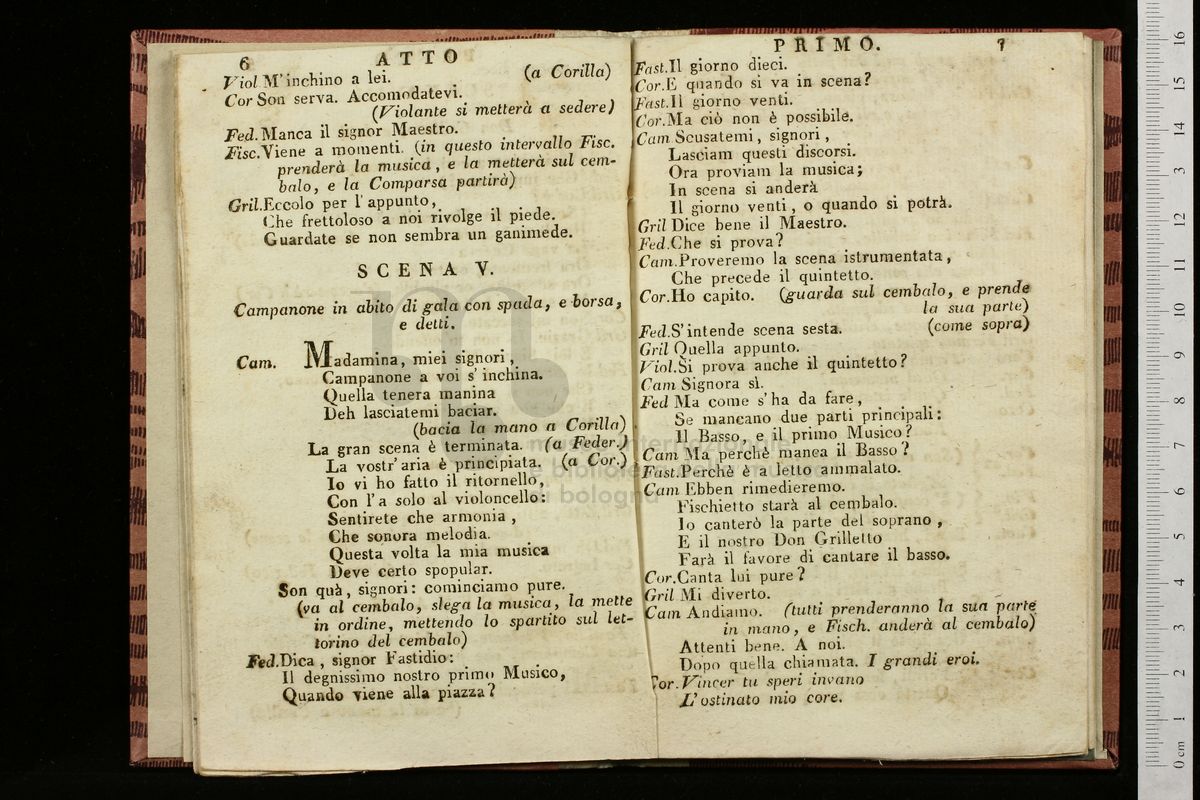 6 ATTO
Viol M'inchino a lei. (a Corilla)
Cor Son serva. Accomodatevi.
(Violante si metterà a sedere)
Fed. Manca il signor Maestro.
Fisc. Viene a momenti. (in questo intervallo Fisc.
prenderà la musica, e la metterà sul cem-
balo, e la Comparsa partirà)
Gril. Eccolo per l'appunto,
Che frettoloso a noi rivolge il piede.
Guardate se non sembra un ganimede.
SCENA V.
Campanone in abito di gala con spada, e borsa,
e detti.
Cam. Madamina, miei signori,
Campanone a voi s'inchina.
Quella tenera manina
Deh lasciatemi baciar.
(bacia la mano a Corilla)
La gran scena è terminata. (a Feder.)
La vostr'aria è principiata. (a Cor.)
Io vi ho fatto il ritornello,
Con l'a solo al violoncello:
Sentirete che armonia,
Che sonora melodia.
Questa volta la mia musica
Deve certo spopular.
Son quà, signori: cominciamo pure.
(va al cembalo, slega la musica, la mette
in ordine, mettendo lo spartito sul let-
torino del cembalo)
Fed. Dica, signor Fastidio:
Il degnissimo nostro primo Musico,
Quando viene alla piazza?
PRIMO. 7
Fast. Il giorno dieci.
Cor. E quando si va in scena?
Fast. Il giorno venti.
Cor. Ma ciò non è possibile.
Cam Scusatemi, signori,
Lasciam questi discorsi.
Ora proviam la musica;
In scena si anderà
Il giorno venti, o quando si potrà.
Gril Dice bene il Maestro.
Fed. Che si prova?
Cam. Proveremo la scena istrumentata,
Che precede il quintetto.
Cor. Ho capito. (guarda sul cembalo, e prende
la sua parte)
Fed. S'intende scena sesta. (come sopra)
Gril Quella appunto.
Viol. Si prova anche il quintetto?
Cam Signora sì.
Fed Ma come s'ha da fare,
Se mancano due parti principali:
Il Basso, e il primo Musico?
Cam Ma perchè manca il Basso?
Fast. Perchè è a letto ammalato.
Cam Ebben rimedieremo.
Fischietto starà al cembalo.
Io canterò la parte del soprano,
E il nostro Don Grilletto
Farà il favore di cantare il basso.
Cor. Canta lui pure?
Gril Mi diverto.
Cam Andiamo. (tutti prenderanno la sua parte
in mano, e Fisch. anderà al cembalo)
Attenti bene. A noi.
Dopo quella chiamata. I grandi eroi.
Cor. Vincer tu speri invano
L'ostinato mio core.
museo internazionale
e biblioteca della musica
di bologna
0 cm 1 2 3 4 5 6 7 8 9 10 11 12 13 14 15 16